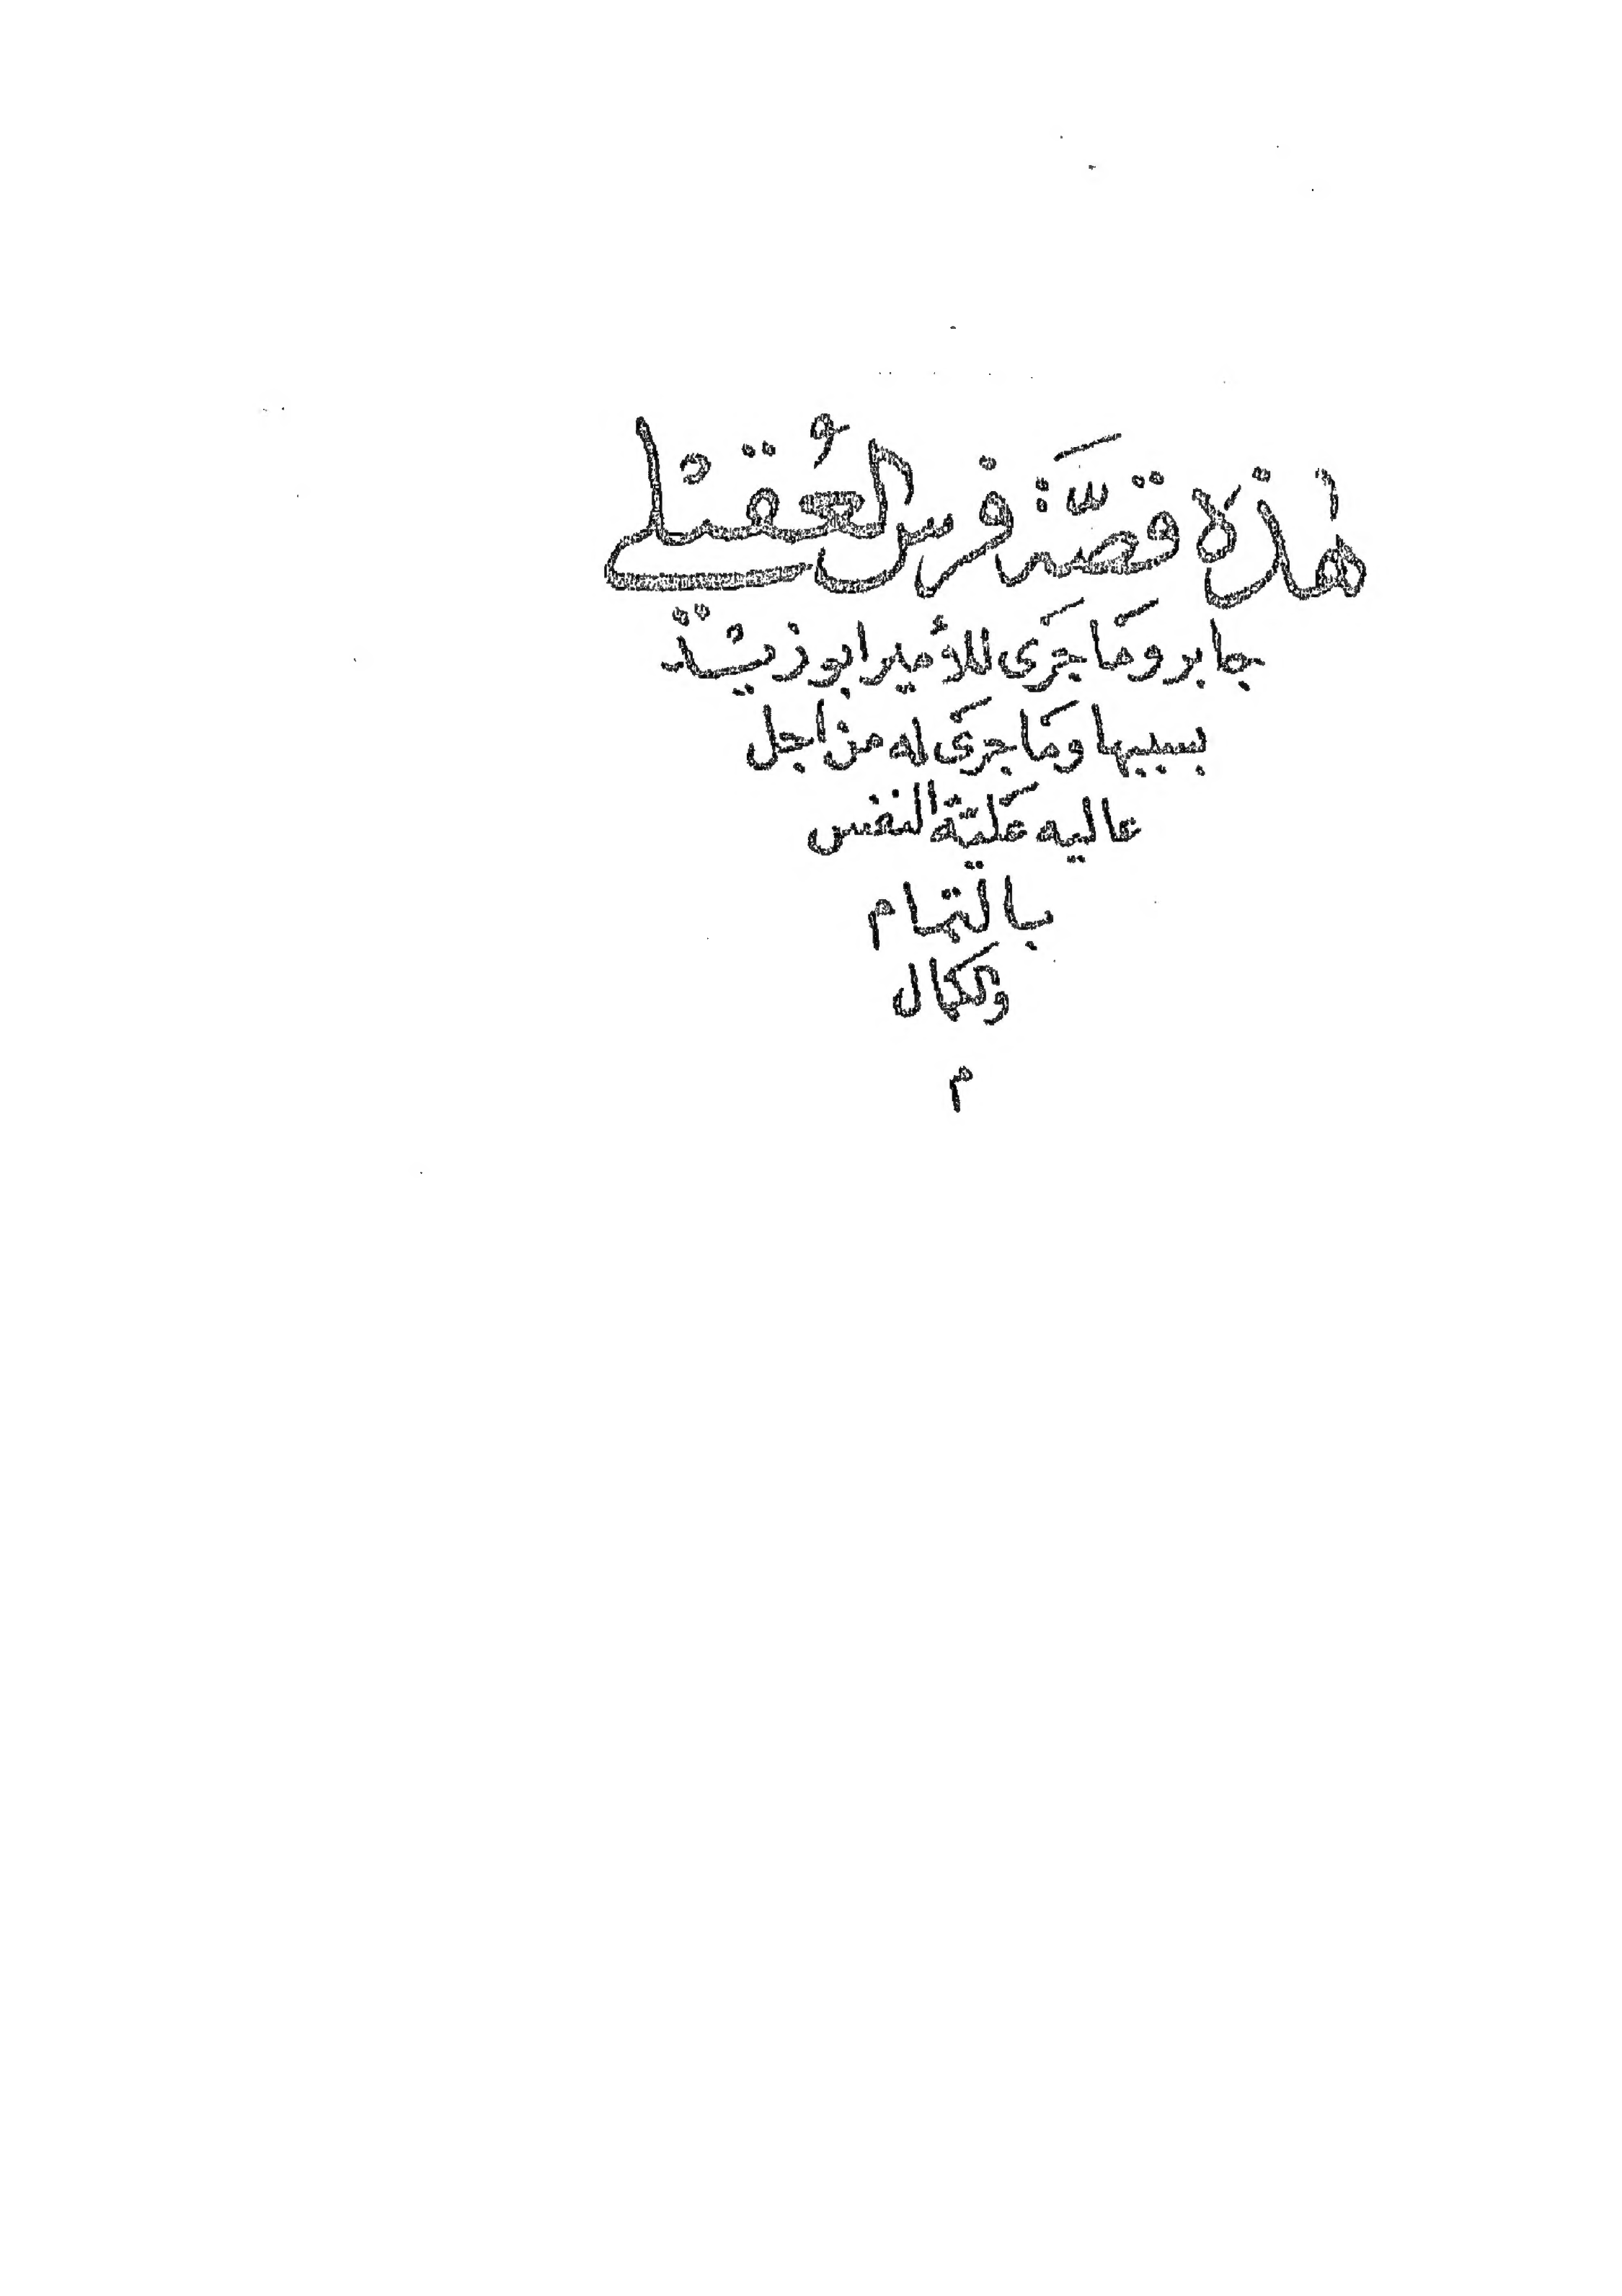 هٰذِهِ قصَّة فرس العُقيلي
جابر وَمَا جَرَى للأمير ابو زيد
بسببها ومَا جرَى له من اجل
عاليه عَليّة النفس
بالتمام
والكمال
م